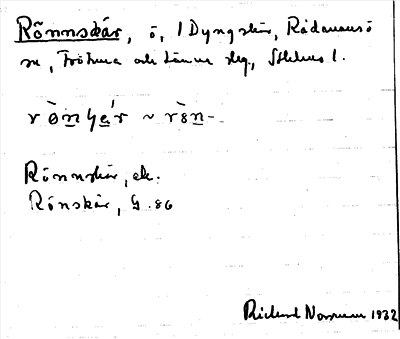 Rönnskär, ö, i Dyngskär, Rådmansö
sn, Frötuna och Länna skg., Sthlms l.
Rönnskär, ek.
Rönskär, G. 86
Rickard Norrman 1932